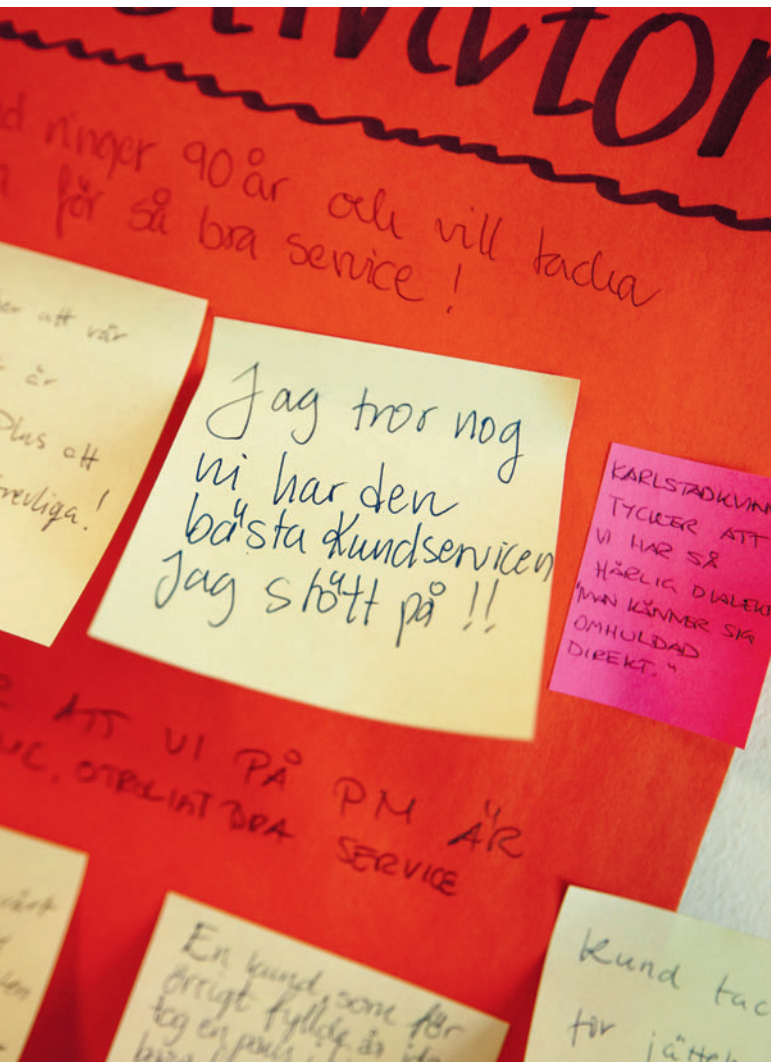 ringer 90 år och vill tacka
för så bra service!
att vår
är
Plus att
trevliga!
Jag tror nog
ni har den
bästa kundservicen
Jag stött på!!
KARLSTADKVINN
TYCKER ATT
VI HAR SÅ
HÄRLIG DIALEKT
"MAN KÄNNER SIG
OMHULDAD
DIREKT."
ATT VI PÅ PM ÄR
OTROLIGT BRA SERVICE
En kund, som för
övrigt fyllde år
tog en
Kund tac
för jätte